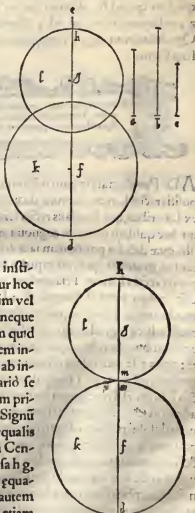 e
h
l g
a b c
k f
d
insti-
ur hoc
im vel
neque
n quid
em in-
ab in-
ariò se
m pri-
Signū
qualis
Cen-
sa h g,
equa-
autem
etiam
h
l g
m
n
k f
d